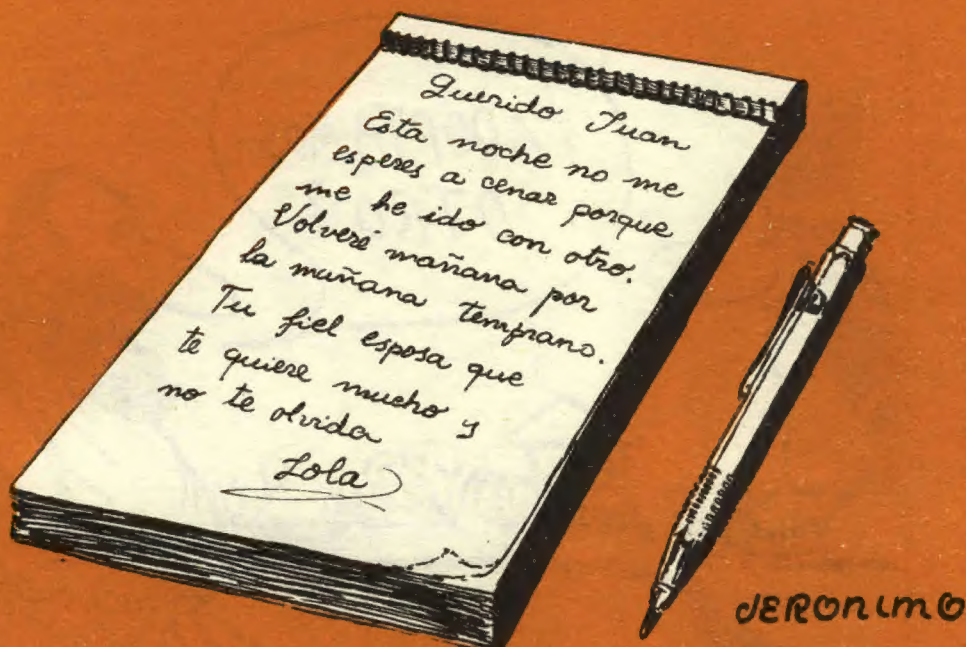 Querido Juan
Esta noche no me
esperes a cenar porque
me he ido con otro.
Volveré mañana por
la mañana temprano.
Tu fiel esposa que
te quiere mucho y
no te olvida
Lola
JERONIMO